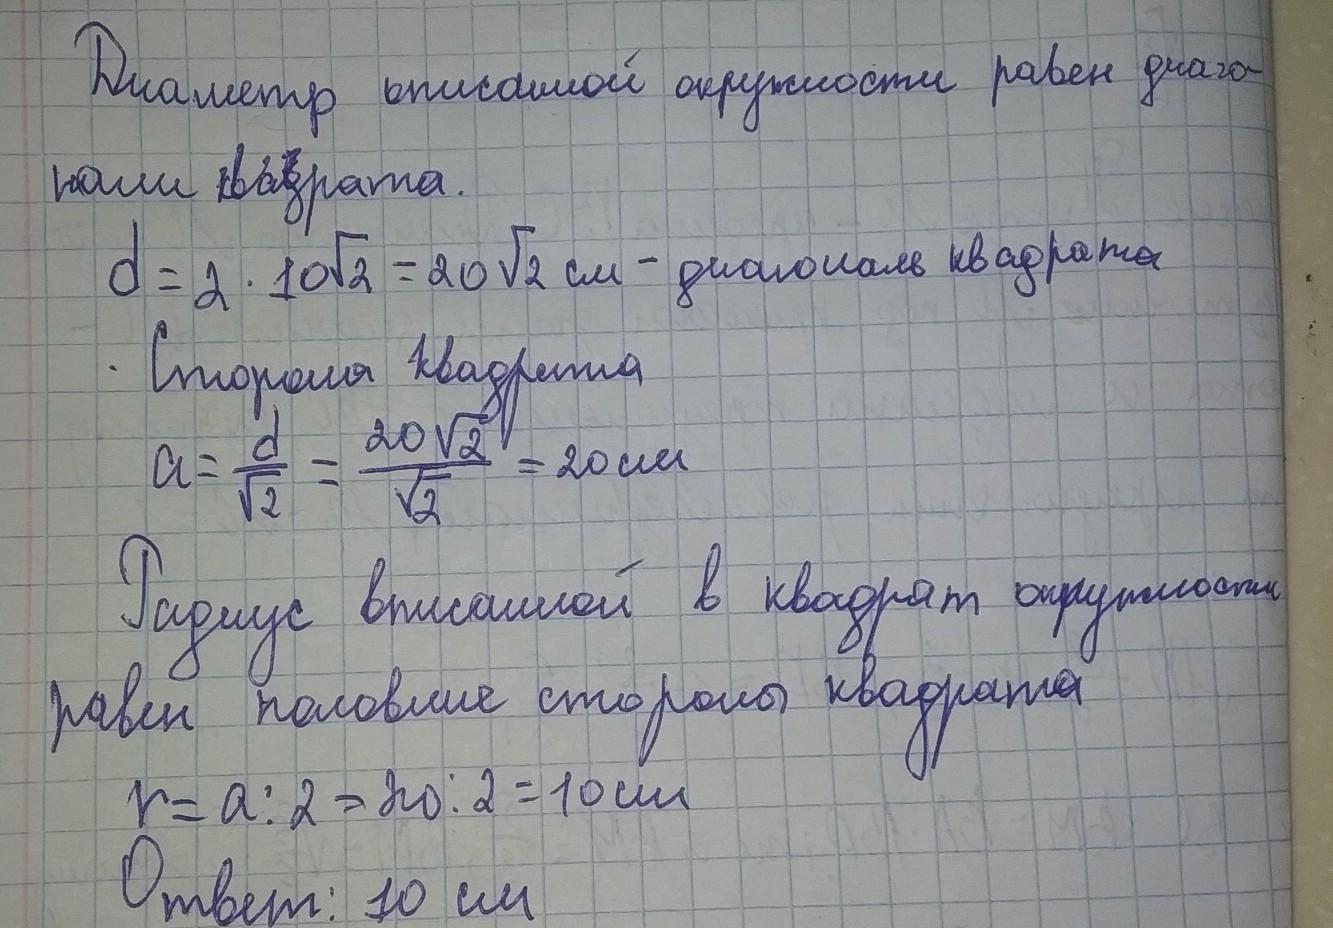 Диаметр описанной окружности равен диаго-
нали квадрата.
d = 2 · 10√2 = 20√2 см - диагональ квадрата
Сторона квадрата
a = d/√2 = 20√2/√2 = 20 см
Радиус вписанной в квадрат окружности
равен половине стороны квадрата
r = a : 2 = 20 : 2 = 10 см
Ответ: 10 см